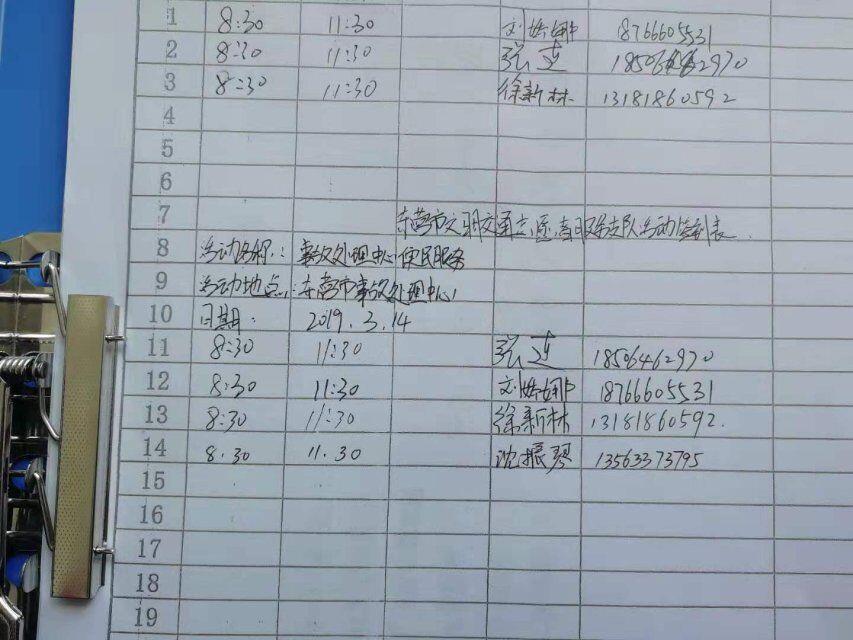 1 8:30 11:30 刘娜 18766605531
2 8:30 11:30 张 1850 2970
3 8:30 11:30 徐新林 13181860592
4
5
6
7 东营市文明交通志愿者服务支队活动签到表
8 活动名称: 事故处理中心便民服务
9 活动地点: 东营市事故处理中心
10 日期: 2019.3.14
11 8:30 11:30 张 18506462970
12 8:30 11:30 刘娜 18766605531
13 8:30 11:30 徐新林 13181860592.
14 8.30 11.30 沈振琴 13563373795
15
16
17
18
19